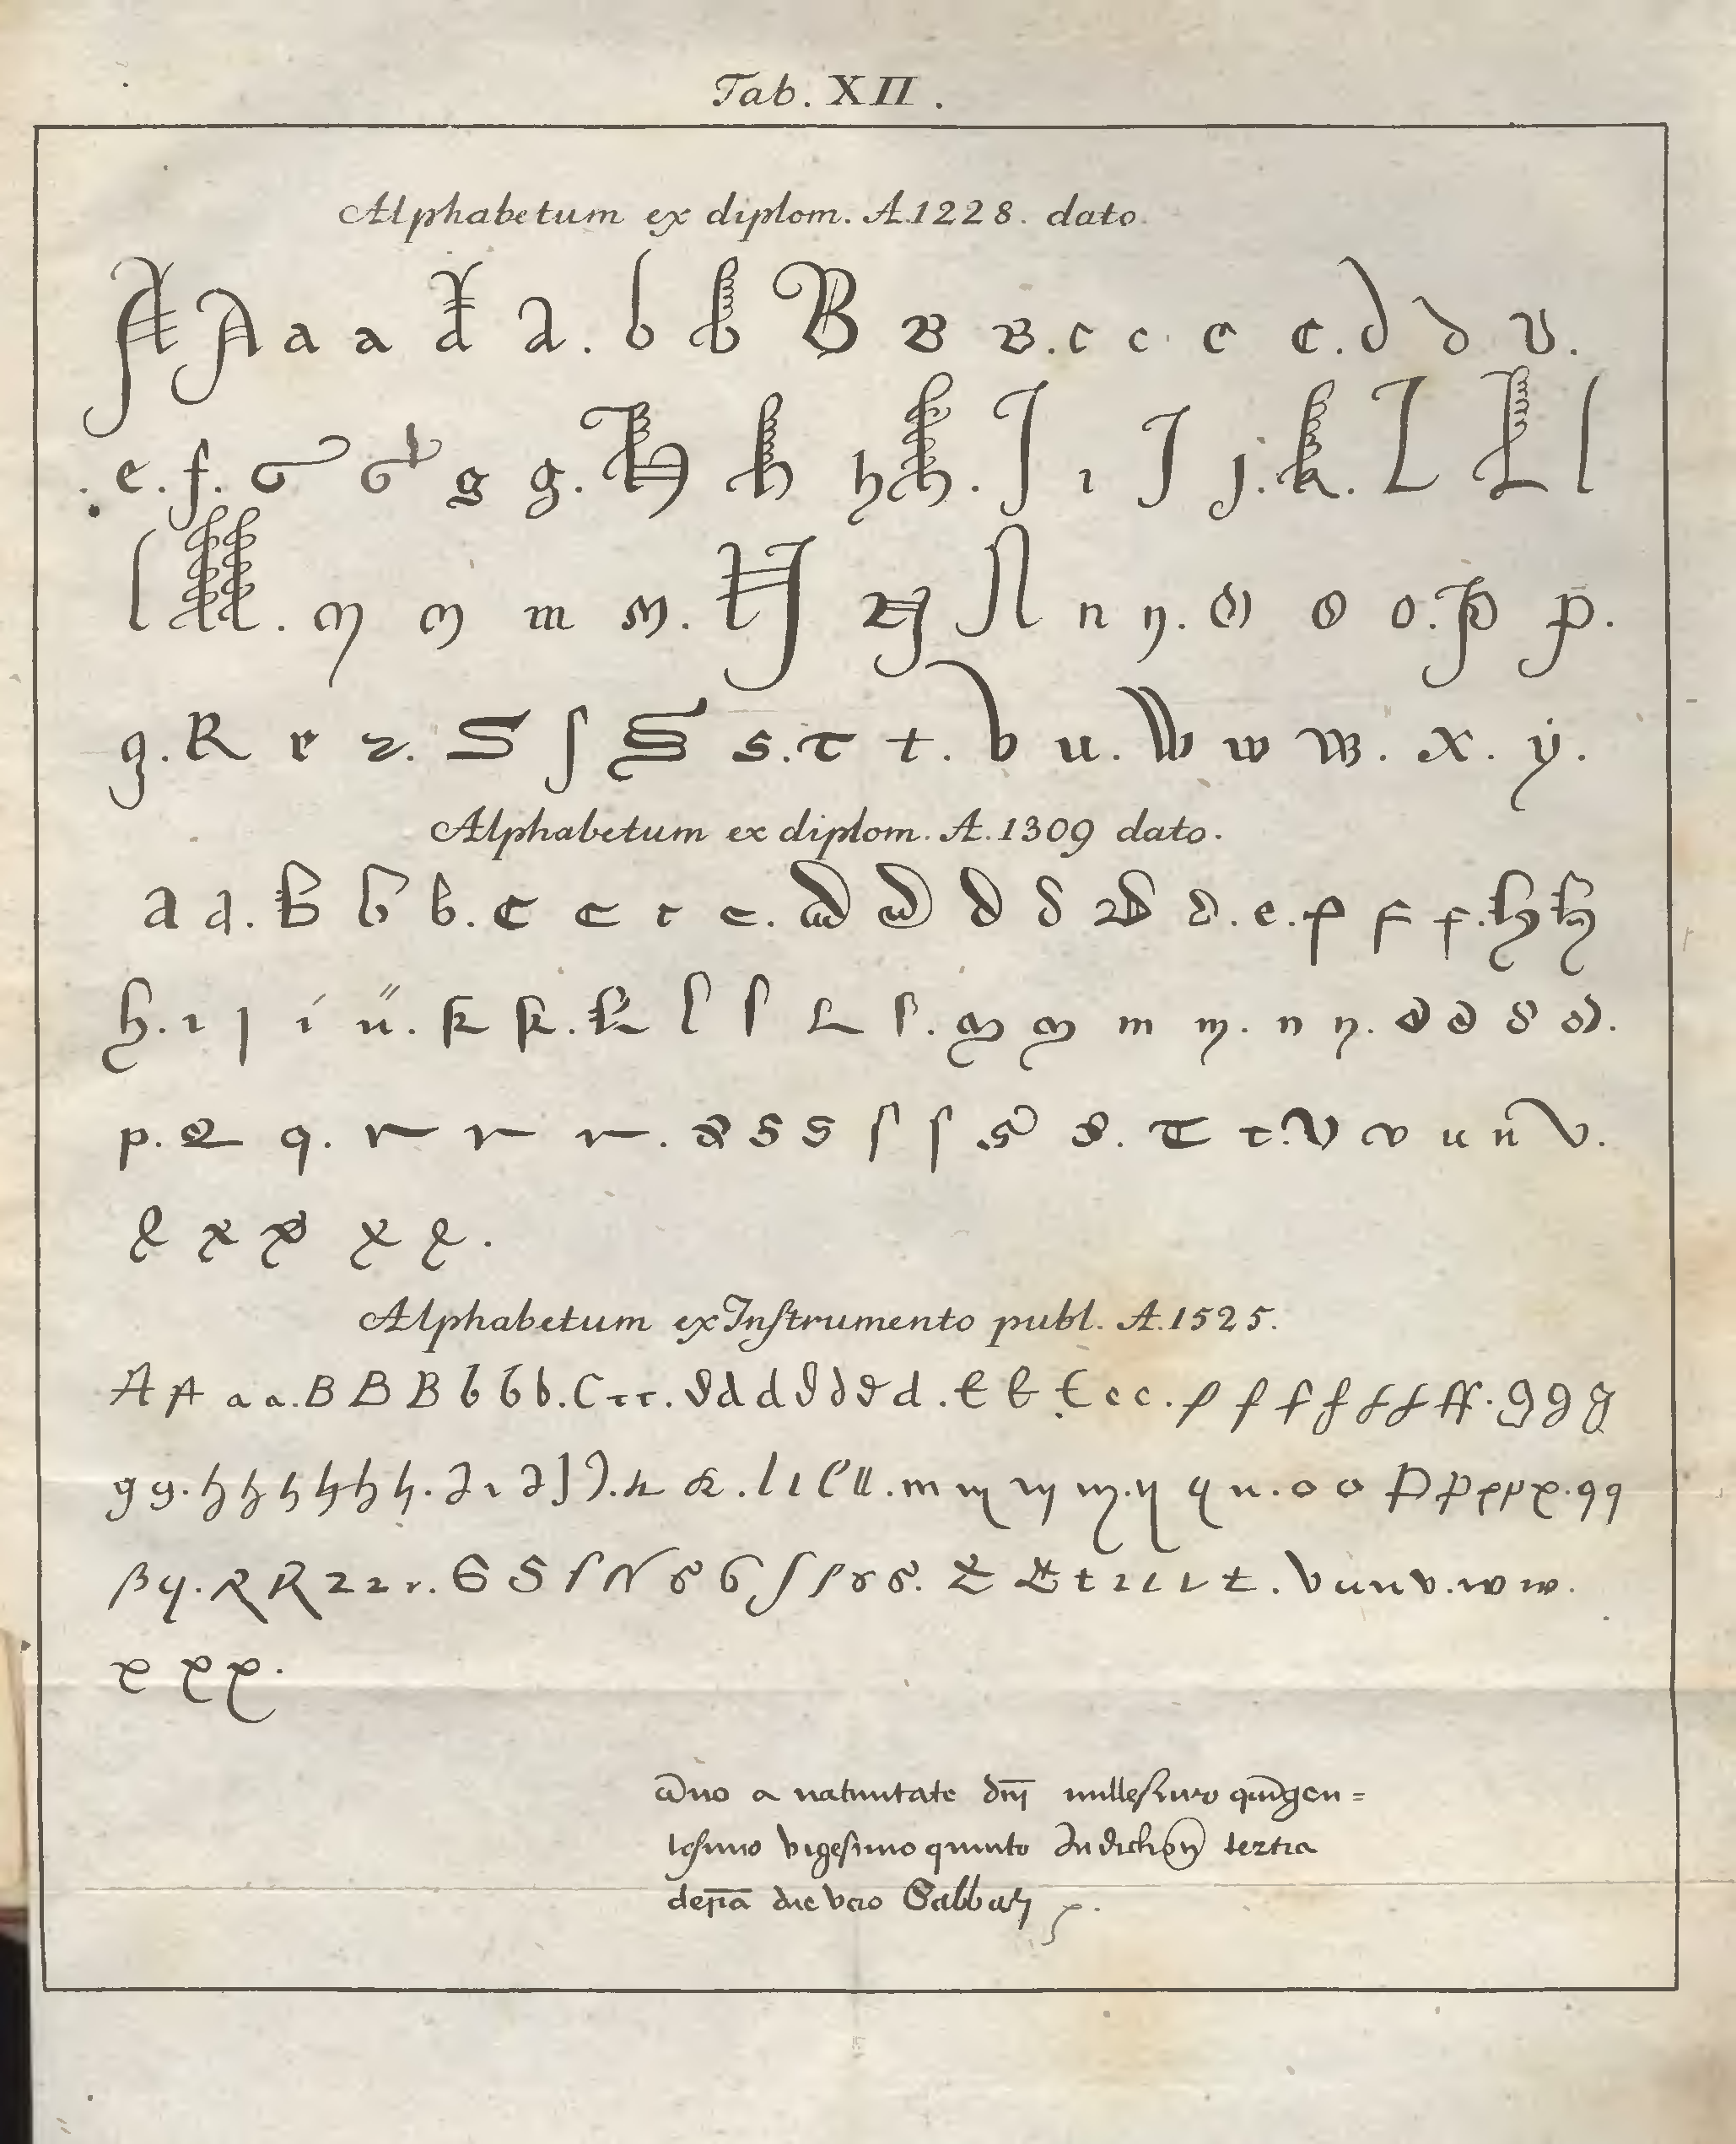 Tab. XII.
Alphabetum ex diplom. A. 1228. dato.
A A a a a a . b b B B B . c c c c . d d d .
e . f . G G g g . H h h h . J ı J j . k . L L l
l ll . m m m m . N N N n n . O O o . p p .
q . R r r . S ſ S s . T t . b u . W w w . x . ÿ .
Alphabetum ex diplom. A. 1309 dato.
a a . B b b . c c c c . d d d d d d . e . f f f . h h
h . ı j í u̎ . k k . k l l L l . m m m m . n n . o o o o .
p . Q q . r r r . S S S ſ ſ s s . T t . V v u u v .
x x x x x .
Alphabetum ex Inſtrumento publ. A. 1525.
A A a a . B B B b b b . C c c . d d d d d d d . E E E e c . f f f f f f ff . g g g
g g . h h h h h h . J ı J J J . k k . l l l ll . m m m m . n n n . o o P p p p p . q q
q q . R R 2 2 r . S S ſ ſ s S ſ ſ s s . T T t t t t t . v u u v . w w .
x x x .
a̅no a natiuitate dn̅i milleſimo qui̅gen=
teſimo vigeſimo quinto Indiction̅ tertia
die vero Sabbati